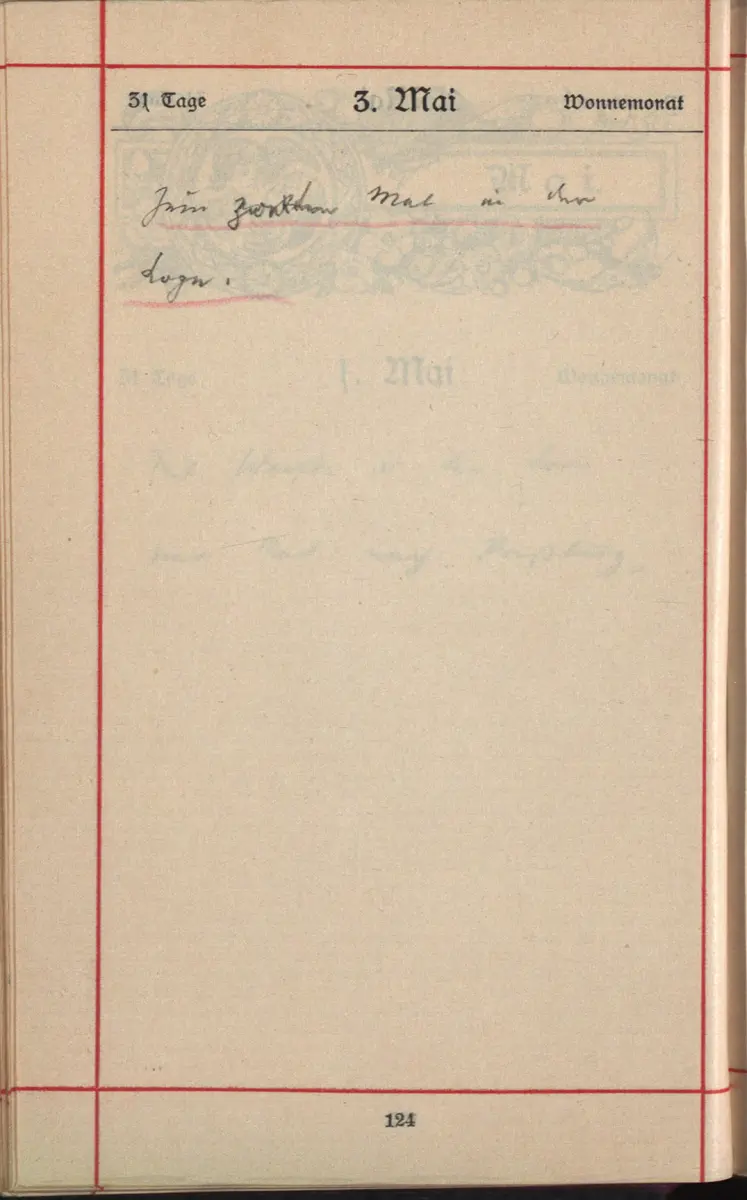 31 Tage 3. Mai Wonnemonat
Zum zweiten Mal in der
Loge.
124